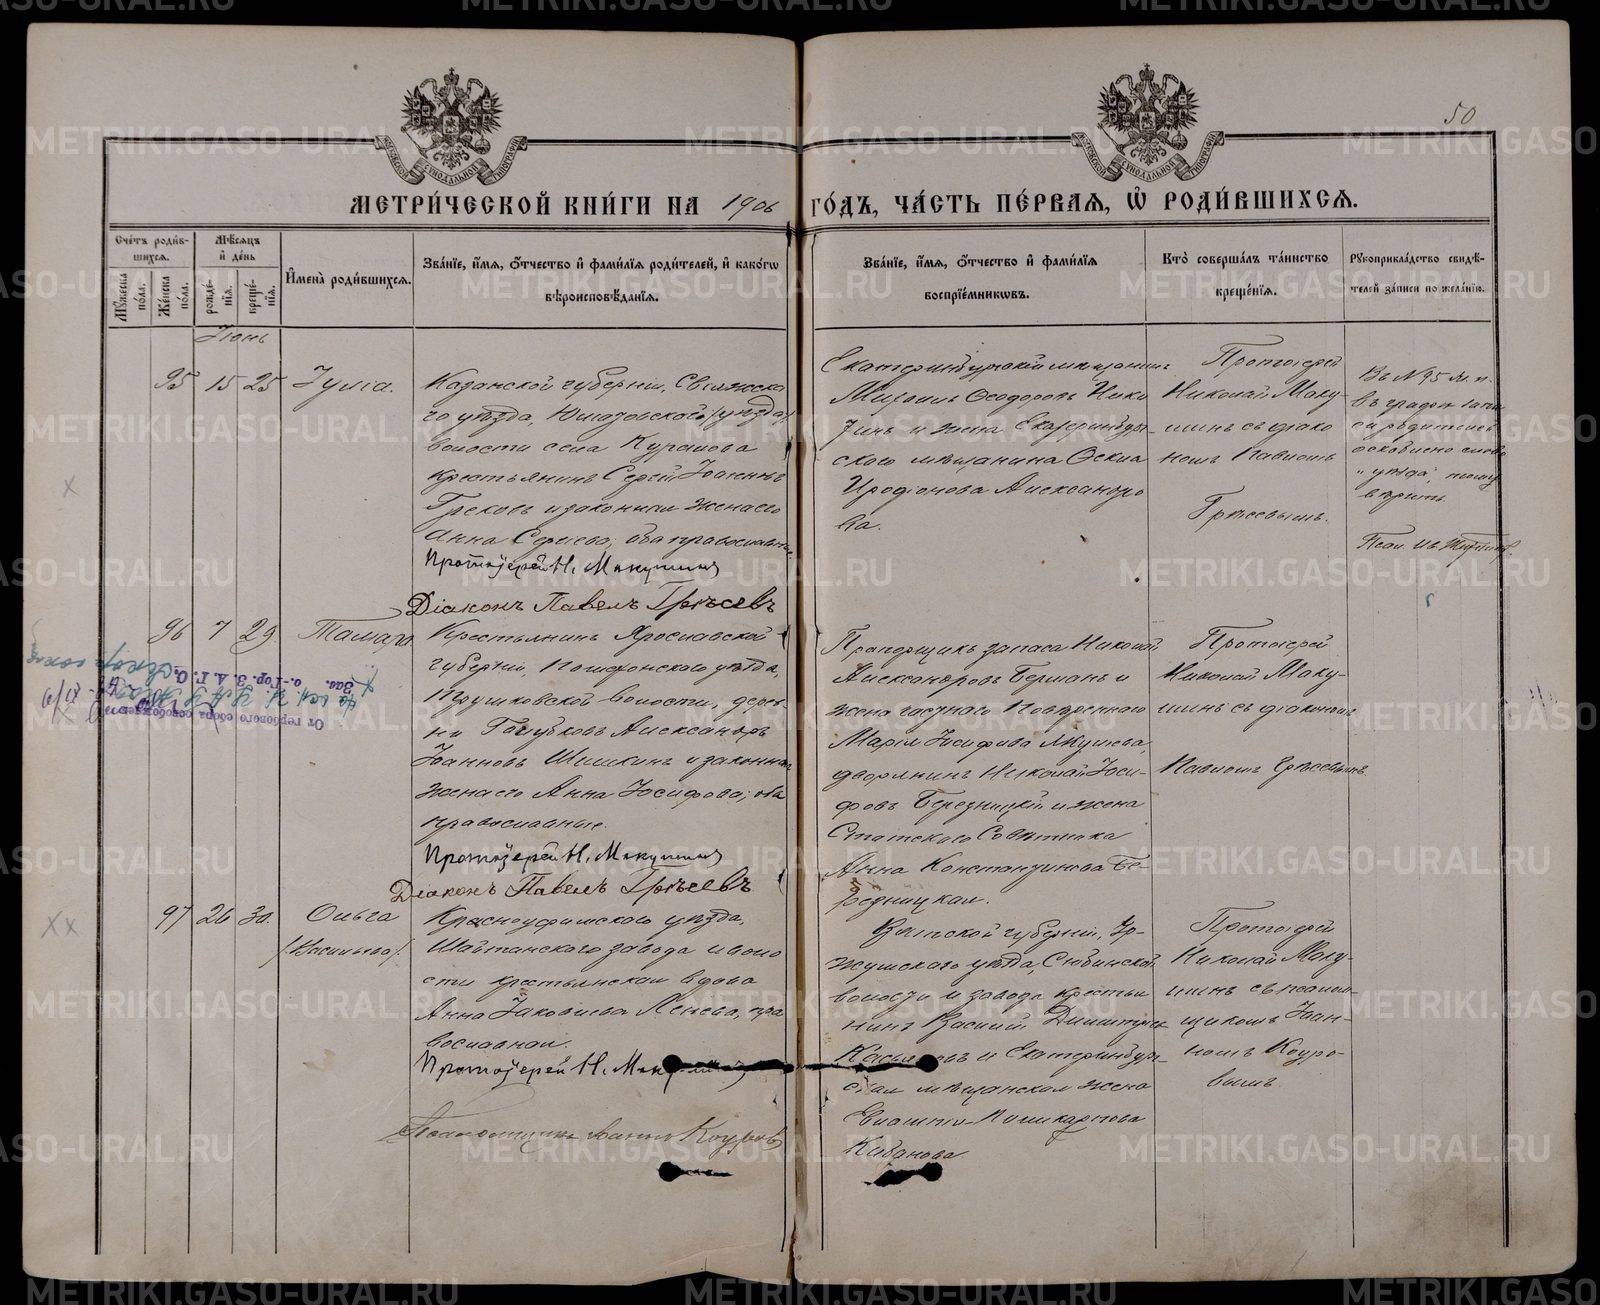 50
МЕТРИ́ЧЕСКОЙ КНИ́ГИ НА 1906 ГО́ДЪ, ЧА́СТЬ ПЕ́РВАЯ, Ѽ РОДИ́ВШИХСЯ.
Сче́тъ роди́в-
шихся.
Му́жеска по́ла.
Же́нска по́ла.
Мѣ́сяцъ
и҆ де́нь
рожде́-
нїя.
креще́-
нїя.
И҆мена̀ роди́вшихся.
Зва́нїе, и҆́мя, ѻ҆́тчество и҆ фами́лїя роди́телей, и҆ како́гѡ
вѣроисповѣ́данїя.
Зва́нїе, и҆́мя, ѻ҆́тчество и҆ фами́лїя
воспрїе́мникѡвъ.
Кто̀ соверша́лъ та́инство
креще́нїя.
Рꙋкоприкла́дство свидѣ́-
телей за́писи по жела́нїю.
Іюнь
95 15 25 Іулія.
Казанской губерніи, Свіяжска-
го уѣзда,
волости села
крестьянинъ Сергѣй Іоанновъ
Грековъ и законная жена его
Анна Сергѣева, оба православные.
Протоіерей Н. Макушинъ
Діаконъ Павелъ Грѣсевъ
Екатеринбургскій мѣщанинъ
Михаилъ Ѳеодоровъ Ники-
тинъ и жена Екатеринбург-
скаго мѣщанина
Иродіонова Александро-
ва.
Протоіерей
Николай Маку-
шинъ съ діако-
номъ Павломъ
Грѣсевымъ.
Въ № 95 м. п.
въ графѣ
о родителяхъ
слово
"уѣзда",
вѣрить.
Псал. Ив.
96 7 29 Тамара.
Крестьянинъ Ярославской
губерніи, Пошехонскаго уѣзда,
волости, дерев-
ни Голубково Александръ
Іоанновъ Шишкинъ и законная
жена его Анна Іосифова; оба
православные.
Протоіерей Н. Макушинъ
Діаконъ Павелъ Грѣсевъ
Прапорщикъ запаса Николай
Александровъ Берманъ и
жена частнаго повѣреннаго
Марія Іосифова Якушева,
дворянинъ Николай Іоси-
фовъ Березницкій и жена
Статскаго Совѣтника
Анна Константинова Бе-
резницкая.
Протоіерей
Николай Маку-
шинъ съ діакономъ
Павломъ Грѣсевымъ.
От гербового сбора освобождено
Зав. о.-Гор. З.А.Г.С.
97 26 30. Ольга
(Васильева).
Красноуфимскаго уѣзда,
Шайтанскаго завода и воло-
сти крестьянская вдова
Анна Іаковлева Ленева, пра-
вославная.
Протоіерей Н. Макушинъ
Псаломщикъ Іоаннъ Коуровъ
Вятской губерніи, Ур-
жумскаго уѣзда,
волости и завода крестья-
нинъ Василій Димитріевъ
и Екатеринбург-
ская мѣщанская жена
Кабанова.
Протоіерей
Николай Маку-
шинъ съ псалом-
щикомъ Іоан-
номъ Коуро-
вымъ.
METRIKI.GASO-URAL.RU